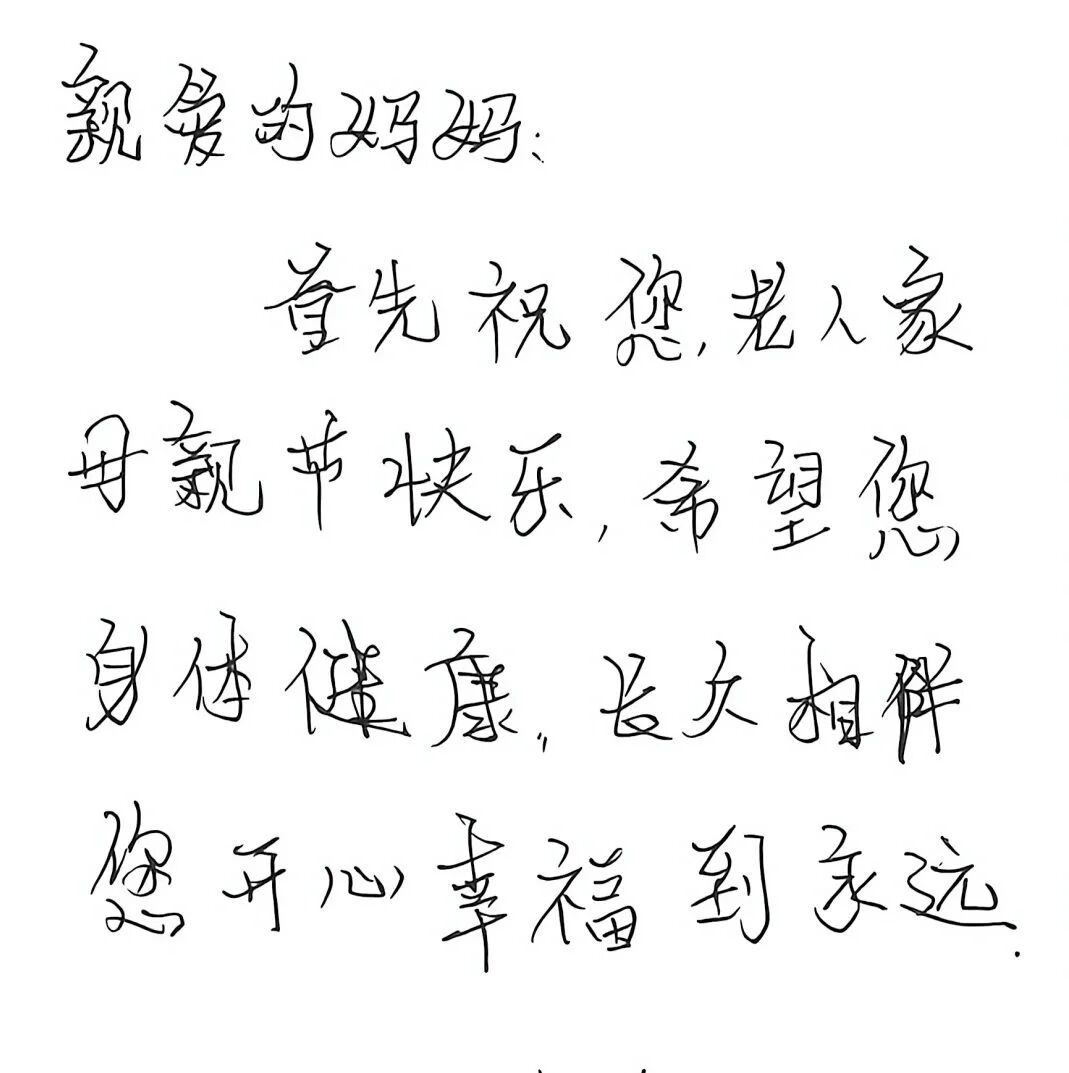 亲爱的妈妈：
首先祝您，老人家
母亲节快乐，希望您
身体健康，长久相伴
您开心幸福到永远.